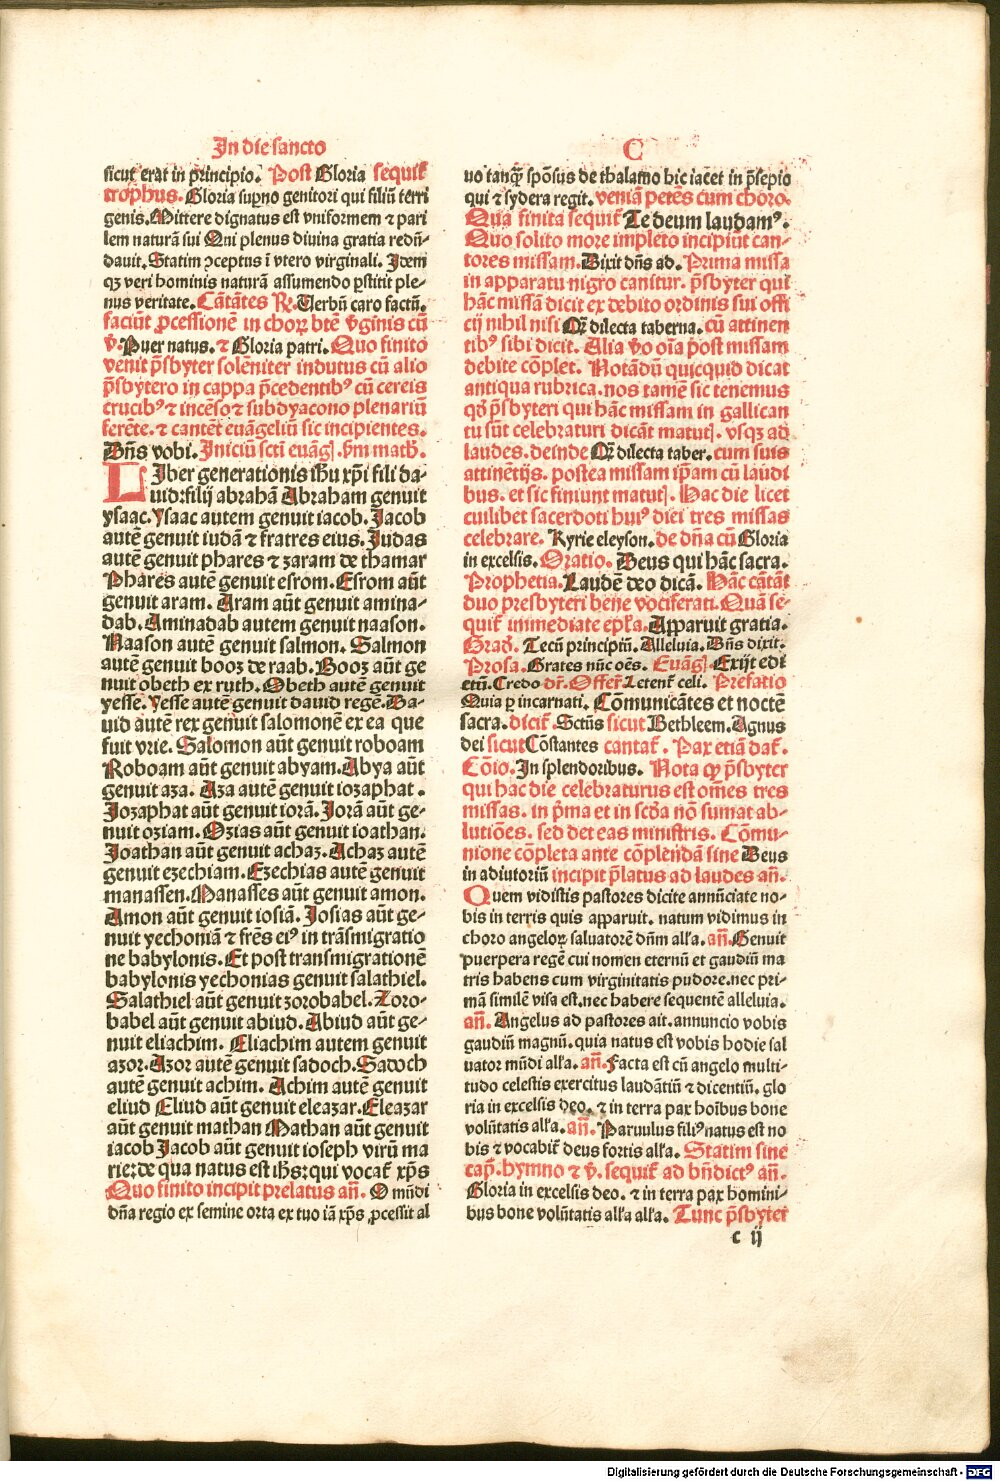 In die sancto
sicut erat in p̄ncipio. Post Gloria sequit᷑
trophus. Gloria sup̱no genitori qui filiū terri
genis. Mittere dignatus est vniformem ⁊ pari
lem naturā sui Qui plenus diuina gratia redū⸗
dauit. Statim ↄceptus ī vtero virginali. Idem
qꝫ veri hominis naturā assumendo p̱stitit ple⸗
nus veritate. Cātātes R̷. Verbū caro factū.
faciūt ꝓcessionē in choꝝ btē v̄ginis cū
v̄. Puer natus. ⁊ Gloria patri. Quo finito
venit p̄sbyter solēniter indutus cū alio
p̄sbytero in cappa p̄cedentibꝰ cū cereis
crucibꝰ ⁊ incēso ⁊ subdyacono plenariū
ferēte. ⁊ cantet euāgeliū sic incipientes.
Dn̄s vobi. Iniciū sctī euāgꝭ. s̄m math̄.
LIber generationis ihu xp̄i fili da⸗
uid: filij abrahā Abraham genuit
ysaac. Ysaac autem genuit iacob. Jacob
autē genuit iudā ⁊ fratres eius. Judas
autē genuit phares ⁊ zaram de thamar
Phares autē genuit esrom. Esrom aūt
genuit aram. Aram aūt genuit amina⸗
dab. Aminadab autem genuit naason.
Naason autē genuit salmon. Salmon
autē genuit booz de raab. Booz aūt ge
nuit obeth ex ruth. Obeth autē genuit
yesse. Yesse autē genuit dauid regē. Da⸗
uid autē rex genuit salomonē ex ea que
fuit vrie. Salomon aūt genuit roboam
Roboam aūt genuit abyam. Abya aūt
genuit aza. Aza autē genuit iozaphat.
Jozaphat aūt genuit iorā. Jorā aūt ge⸗
nuit oziam. Ozias aūt genuit ioathan.
Joathan aūt genuit achaz. Achaz autē
genuit ezechiam. Ezechias autē genuit
manassen. Manasses aūt genuit amon.
Amon aūt genuit iosiā. Josias aūt ge⸗
nuit yechoniā ⁊ frēs eiꝰ in trāsmigratio
ne babylonis. Et post transmigrationē
babylonis yechonias genuit salathiel.
Salathiel aūt genuit zorobabel. Zoro⸗
babel aūt genuit abiud. Abiud aūt ge⸗
nuit eliachim. Eliachim autem genuit
azor. Azor autē genuit sadoch. Sadoch
autē genuit achim. Achim autē genuit
eliud Eliud aūt genuit eleazar. Eleazar
aūt genuit mathan Mathan aūt genuit
iacob Jacob aūt genuit ioseph virū ma
rie: de qua natus est ih̄s: qui vocat᷑ xp̄s
Quo finito incipit prelatus an̄. O mūdi
dn̄a regio ex semine orta ex tuo iā xp̄s ꝓcessit al
C
uo tanqꝫ spōsus de thalamo hic iacet in p̄sepio
qui ⁊ sydera regit. veniā petēs cum choro.
Qua finita sequit᷑ Te deum laudamꝰ.
Quo solito more impleto incipiūt can⸗
tores missam. Dixit dn̄s ad. Prima missa
in apparatu nigro canitur. p̄sbyter qui
hāc missā dicit ex debito ordinis sui offi
cij nihil nisi Qꝫ dilecta taberna. cū attinen
tibꝰ sibi dicit. Alia v̄o oīa post missam
debite cōplet. Notādū quicquid dicat
antiqua rubrica. nos tamē sic tenemus
qd̄ p̄sbyteri qui hāc missam in gallican
tu sūt celebraturi dicāt matutꝭ. vsqꝫ ad
laudes. deinde Qꝫ dilecta taber. cum suis
attinētijs. postea missam ip̄am cū laudi
bus. et sic finiunt matutꝭ. Hac die licet
cuilibet sacerdoti huiꝰ diei tres missas
celebrare. Kyrie eleyson. de dn̄a cū Gloria
in excelsis. Oratio. Deus qui hāc sacra.
Prophetia. Laudē deo dicā. Hāc cātāt
duo presbyteri bene vociferati. Quā se⸗
quit᷑ immediate ep̄la. Apparuit gratia.
Grad᷑. Tecū principiū. Alleluia. Dn̄s dixit.
Prosa. Grates nūc oēs. Euāgꝭ. Exijt edi
ctū. Credo dr̄. Offer᷑. Letent᷑ celi. Prefatio
Quia p̱ incarnati. Cōmunicātes et noctē
sacra. dicit᷑. Sctūs sicut Bethleem. Agnus
dei sicut Cōstantes cantat᷑. Pax etiā dat᷑.
Cōio. In splendoribus. Nota qꝙ p̄sbyter
qui hac die celebraturus est om̄es tres
missas. in p̄ma et in scd̄a nō sumat ab⸗
lutiōes. sed det eas ministris. Cōmu⸗
nione cōpleta ante cōplendā sine Deus
in adiutoriū incipit p̄latus ad laudes an̄.
Quem vidistis pastores dicite annūciate no⸗
bis in terris quis apparuit. natum vidimus in
choro angeloꝝ saluatorē dn̄m alla. an̄. Genuit
puerpera regē cui nomen eternū et gaudiū ma
tris habens cum virginitatis pudore. nec pri⸗
mā similē visa est. nec habere sequentē alleluia.
an̄. Angelus ad pastores ait. annuncio vobis
gaudiū magnū. quia natus est vobis hodie sal
uator mūdi alla. an̄. Facta est cū angelo multi⸗
tudo celestis exercitus laudātiū ⁊ dicentiū. glo
ria in excelsis deo. ⁊ in terra pax hoībus bone
volūtatis alla. an̄. Paruulus filiꝰ natus est no
bis ⁊ vocabit᷑ deus fortis alla. Statim sine
cap̄. hymno ⁊ v̄. sequit᷑ ad bn̄dictꝰ an̄.
Gloria in excelsis deo. ⁊ in terra pax homini⸗
bus bone volūtatis alla alla. Tunc p̄sbyter
c ij
Digitalisierung gefördert durch die Deutsche Forschungsgemeinschaft - DFG